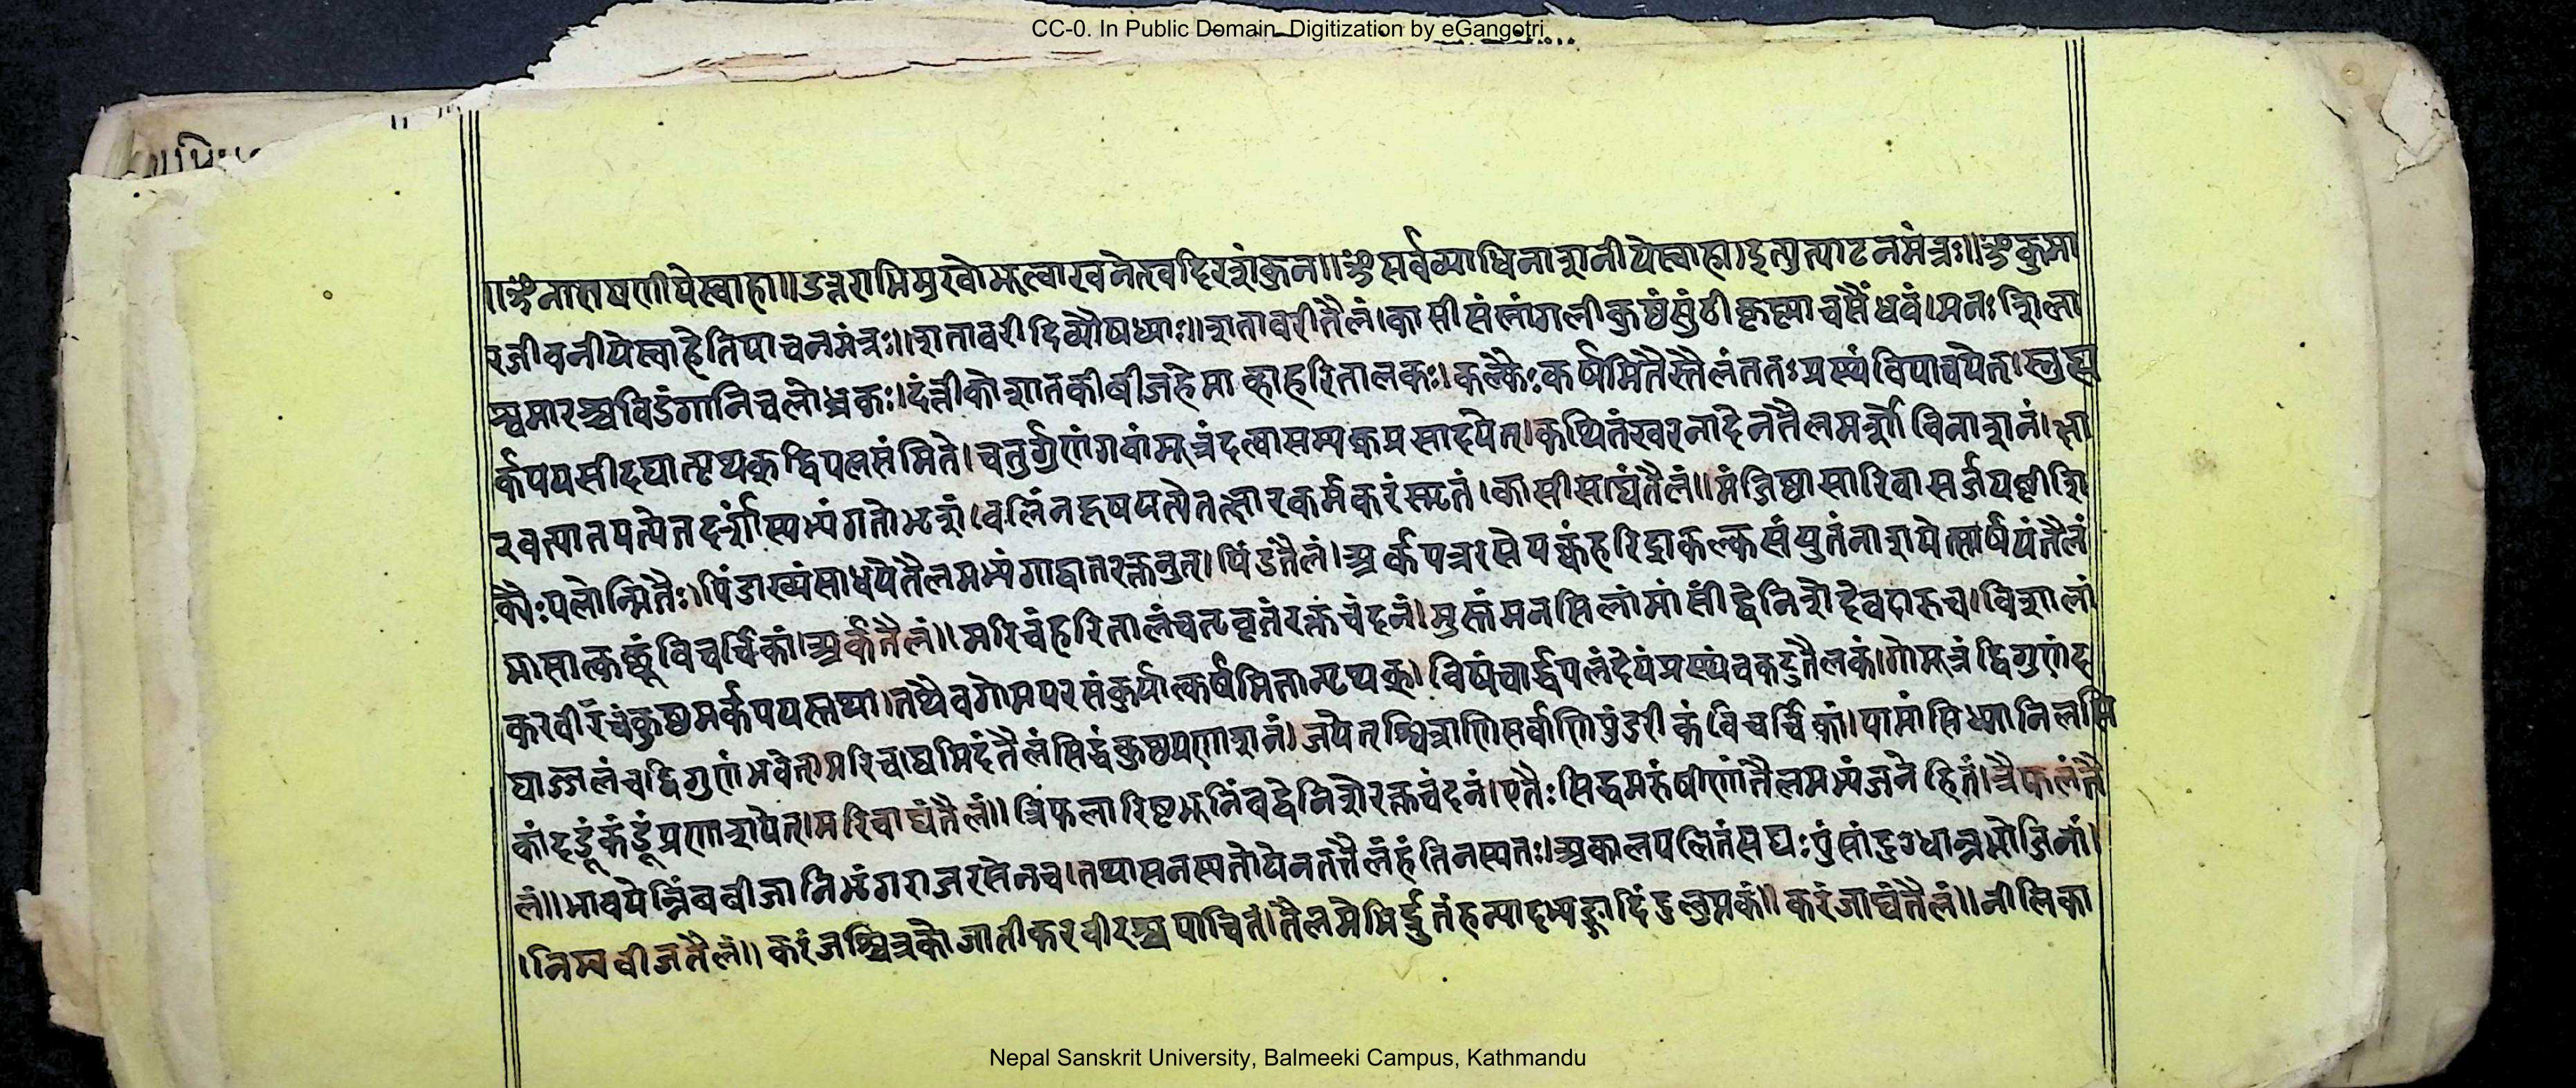 CC-0. In Public Domain. Digitization by eGangotri
॥ॐनारायणीयेस्वाहा॥उत्तराभिमुखोभूत्वाखनेत्खदिरशंकुन॥ॐसर्वव्याधिनाशनीयेस्वाहा।इत्युत्पाटनमंत्रः॥ॐकुमा
रजीवनीयेस्वाहेतिपाचनमंत्रः॥शतावरीदिव्यौषध्याः॥शतावरीतैलं।कासीसंलांगलीकुष्ठंसुंठीकृष्णाचसैंधवं।मनःशिला
श्वमारश्चविडंगानिचलोध्रकः।दंतीकोशातकीबीजहेमाव्हाहरितालकः।कल्कैःकर्षमितैस्तैलंततःप्रस्थंविपाचयेत्।स्नुह्य
र्कपयसीदद्यात्पृथकद्विपलसंमिते।चतुर्गुणंगवांमूत्रंदत्वासम्यकप्रसादयेत्।कथितंखरनादेनतैलमर्शोविनाशनं।क्षा
रवत्पातयत्येतदर्शांस्यभ्यंगतोभृशं।वलिंनदूषयत्येतत्क्षारकर्मकरंस्मृतं।कासीसाद्यंतैलं॥मंजिष्ठासारिवासर्जयष्टीशि
क्थैःपलोन्मितैः।पिंडाख्यंसाधयेतैलमभ्यंगाद्वातरक्तनुत्।पिंडतैलं।अर्कपत्ररसेपक्वंहरिद्राकल्कसंयुतंनाशयेत्सार्षपंतैलं
मासात्कछूंविचर्चिकां।अर्कतैलं॥मरिचंहरितालंचत्रवृतंरक्तचंदनं।मुस्तंमनसिलामांसीद्वेनिशेदेवदारुच।विशालां
करवीरंचकुष्ठमर्कपयस्तथा।तथैवगोमयरसंकुर्यात्कर्षमितान्पृथक्।विषंचार्द्धपलंदेयंप्रस्थंचकटुतैलकं।गोमूत्रंद्विगुणंद
द्याज्जलंचद्विगुणंभवेत्।मरिचाद्यमिदंतैलंसिद्धंकुष्ठप्रणाशनं।जयेतश्वित्राणिसर्वाणिपुंडरीकंविचर्चिकां।पामांसिध्मानिलसि
कांदद्रूंकंडूंप्रणाशयेत्।मरिचाद्यंतैलं॥त्रिफलारिष्टभूनिंबद्वेनिशेरक्तचंदनं।एतैःसिद्धमरुंषीणांतैलमभ्यंजनेहितं।त्रैफलंतै
लं॥भावयेन्निंबबीजानिभृंगराजरसेनच।तथासनस्यतोयेनतत्तैलंहंतिनस्यतः।अकालपलितंसद्यःपुंसांदुग्धान्नभोजिनां।
।निम्बबीजतैलं॥करंजश्चित्रकोजातीकरवीरश्चपाचितं।तैलमेभिर्द्रुतंहन्याद्भ्यङ्गादिंद्रलुप्तकं॥करंजाद्यंतैलं॥नीलिका
Nepal Sanskrit University, Balmeeki Campus, Kathmandu